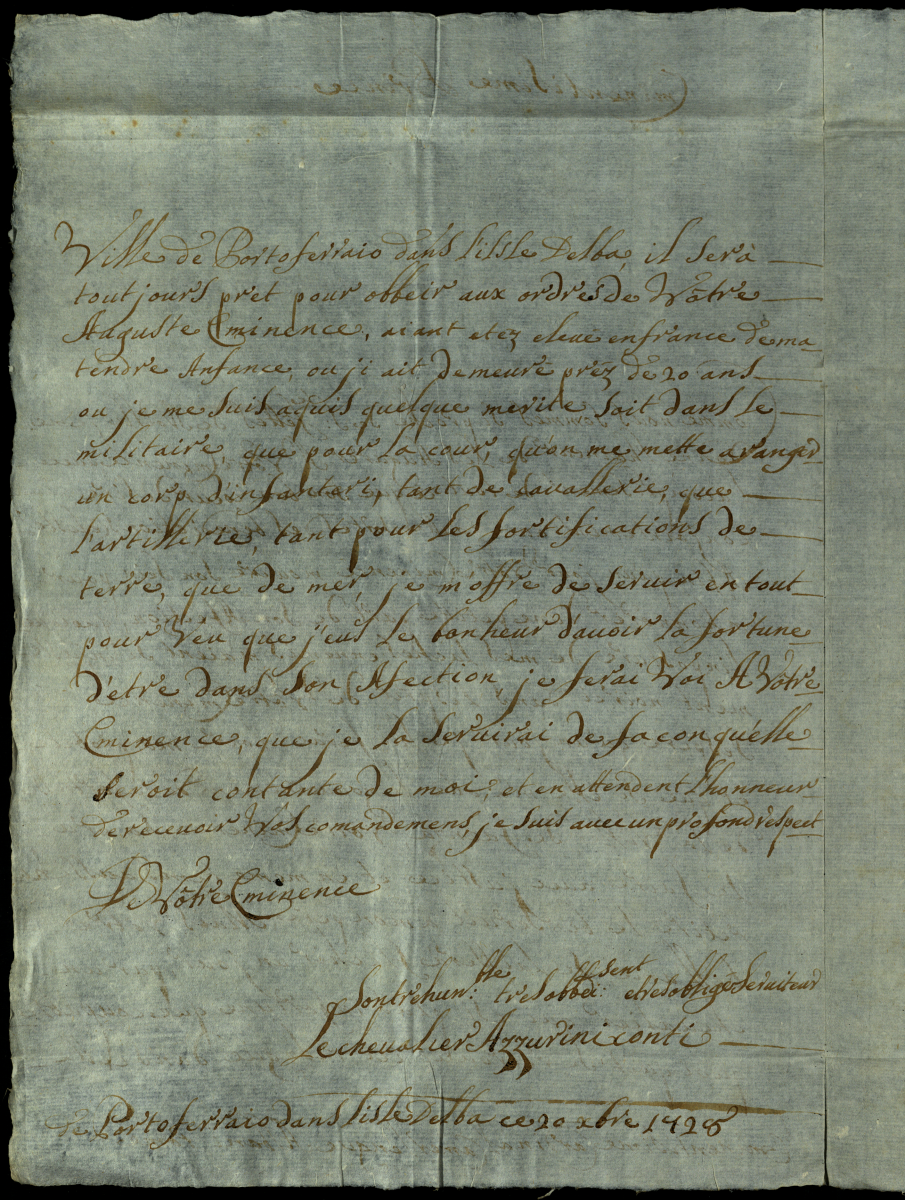 Ville de Portoferraio dans L'isle Delba, il serà
toutjours pret pour obbeir aux ordres de Vôtre
Auguste Eminence, aiant etez elevé en france de ma
tendre Anfance, ou ji ait demeuré préz de 20 ans
ou je me suis aquis quelque merite soit dans le
militaire, que pour la cour, qu'on me mette a ranger
un corp d'infantari, tant de Cavallerie, que
l'artillerie, tant pour les fortifications de
terre, que de mer, je m'offre de servir en tout
pour véu que j'eus le bonheur d'avoir la fortune
d'etre dans son Afection, je ferai Voi A Vôtre
Eminence, que je la servirai de facon qu'elle
seroit contante de moi, et en attendent l'honneur
de recevoir Vos comandemens, je suis avec un profond réspect
De Vôtre Eminence
Son tréhum.ble tresobbeï.sent et resobligé Serviteur
Le chevalier Azzurini conti
de Portoferraio dans l'isle Delba ce 20 xbre 1728